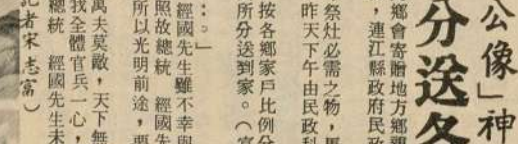 公像」神
分送各
鄉會寄贈地方鄉親
，連江縣政府民政
祭灶必需之物，
昨天下午由民政科
按各鄉家戶比例分
所分送到家。（
：。」
經國先生雖不幸與
照故總統　經國先
所以光明前途，要
萬夫莫敵，天下無
我全體官兵一心，
總統　經國先生未
記者宋志富）